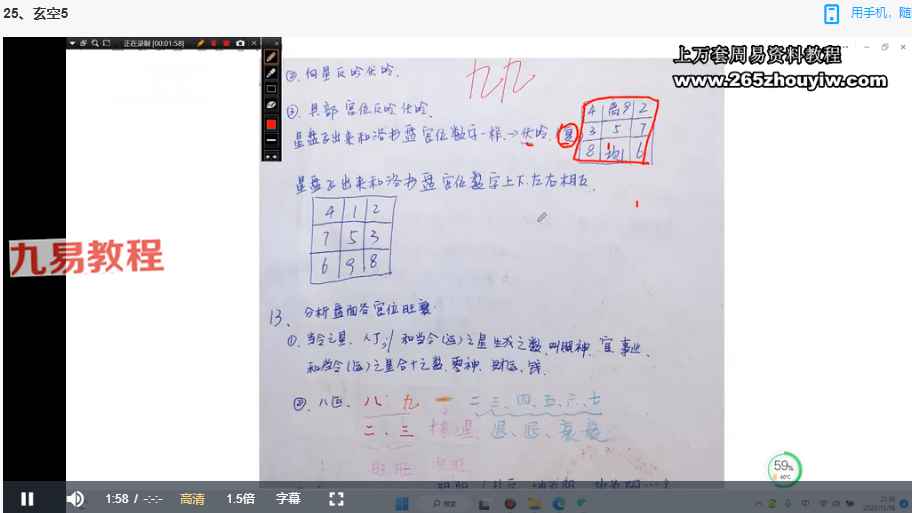 25、玄空5
用手机，随
正在录制 [00:01:58]
上万套周易资料教程
www.265zhouyiw.com
九九
②、向星反吟伏吟.
③、具部宫位反吟伏吟.
星盘飞出来和洛书盘宫位数字一样.→伏吟.
4 离9 2
3 5 7
8 坎1 6
星盘飞出来和洛书盘宫位数字上下.左右相反.
4 1 2
7 5 3
6 9 8
九易教程
13、分析盘面各宫位旺衰.
①、当令之星、人丁、和当令(运)之星生成之数,叫照神、官、事业、
和当令(运)之星合十之数,零神、财运、钱.
②、八运、八、九 一 二、三、四、五、六、七
二、三
退、
59%
1:58 / -:-:-
高清
1.5倍
字幕